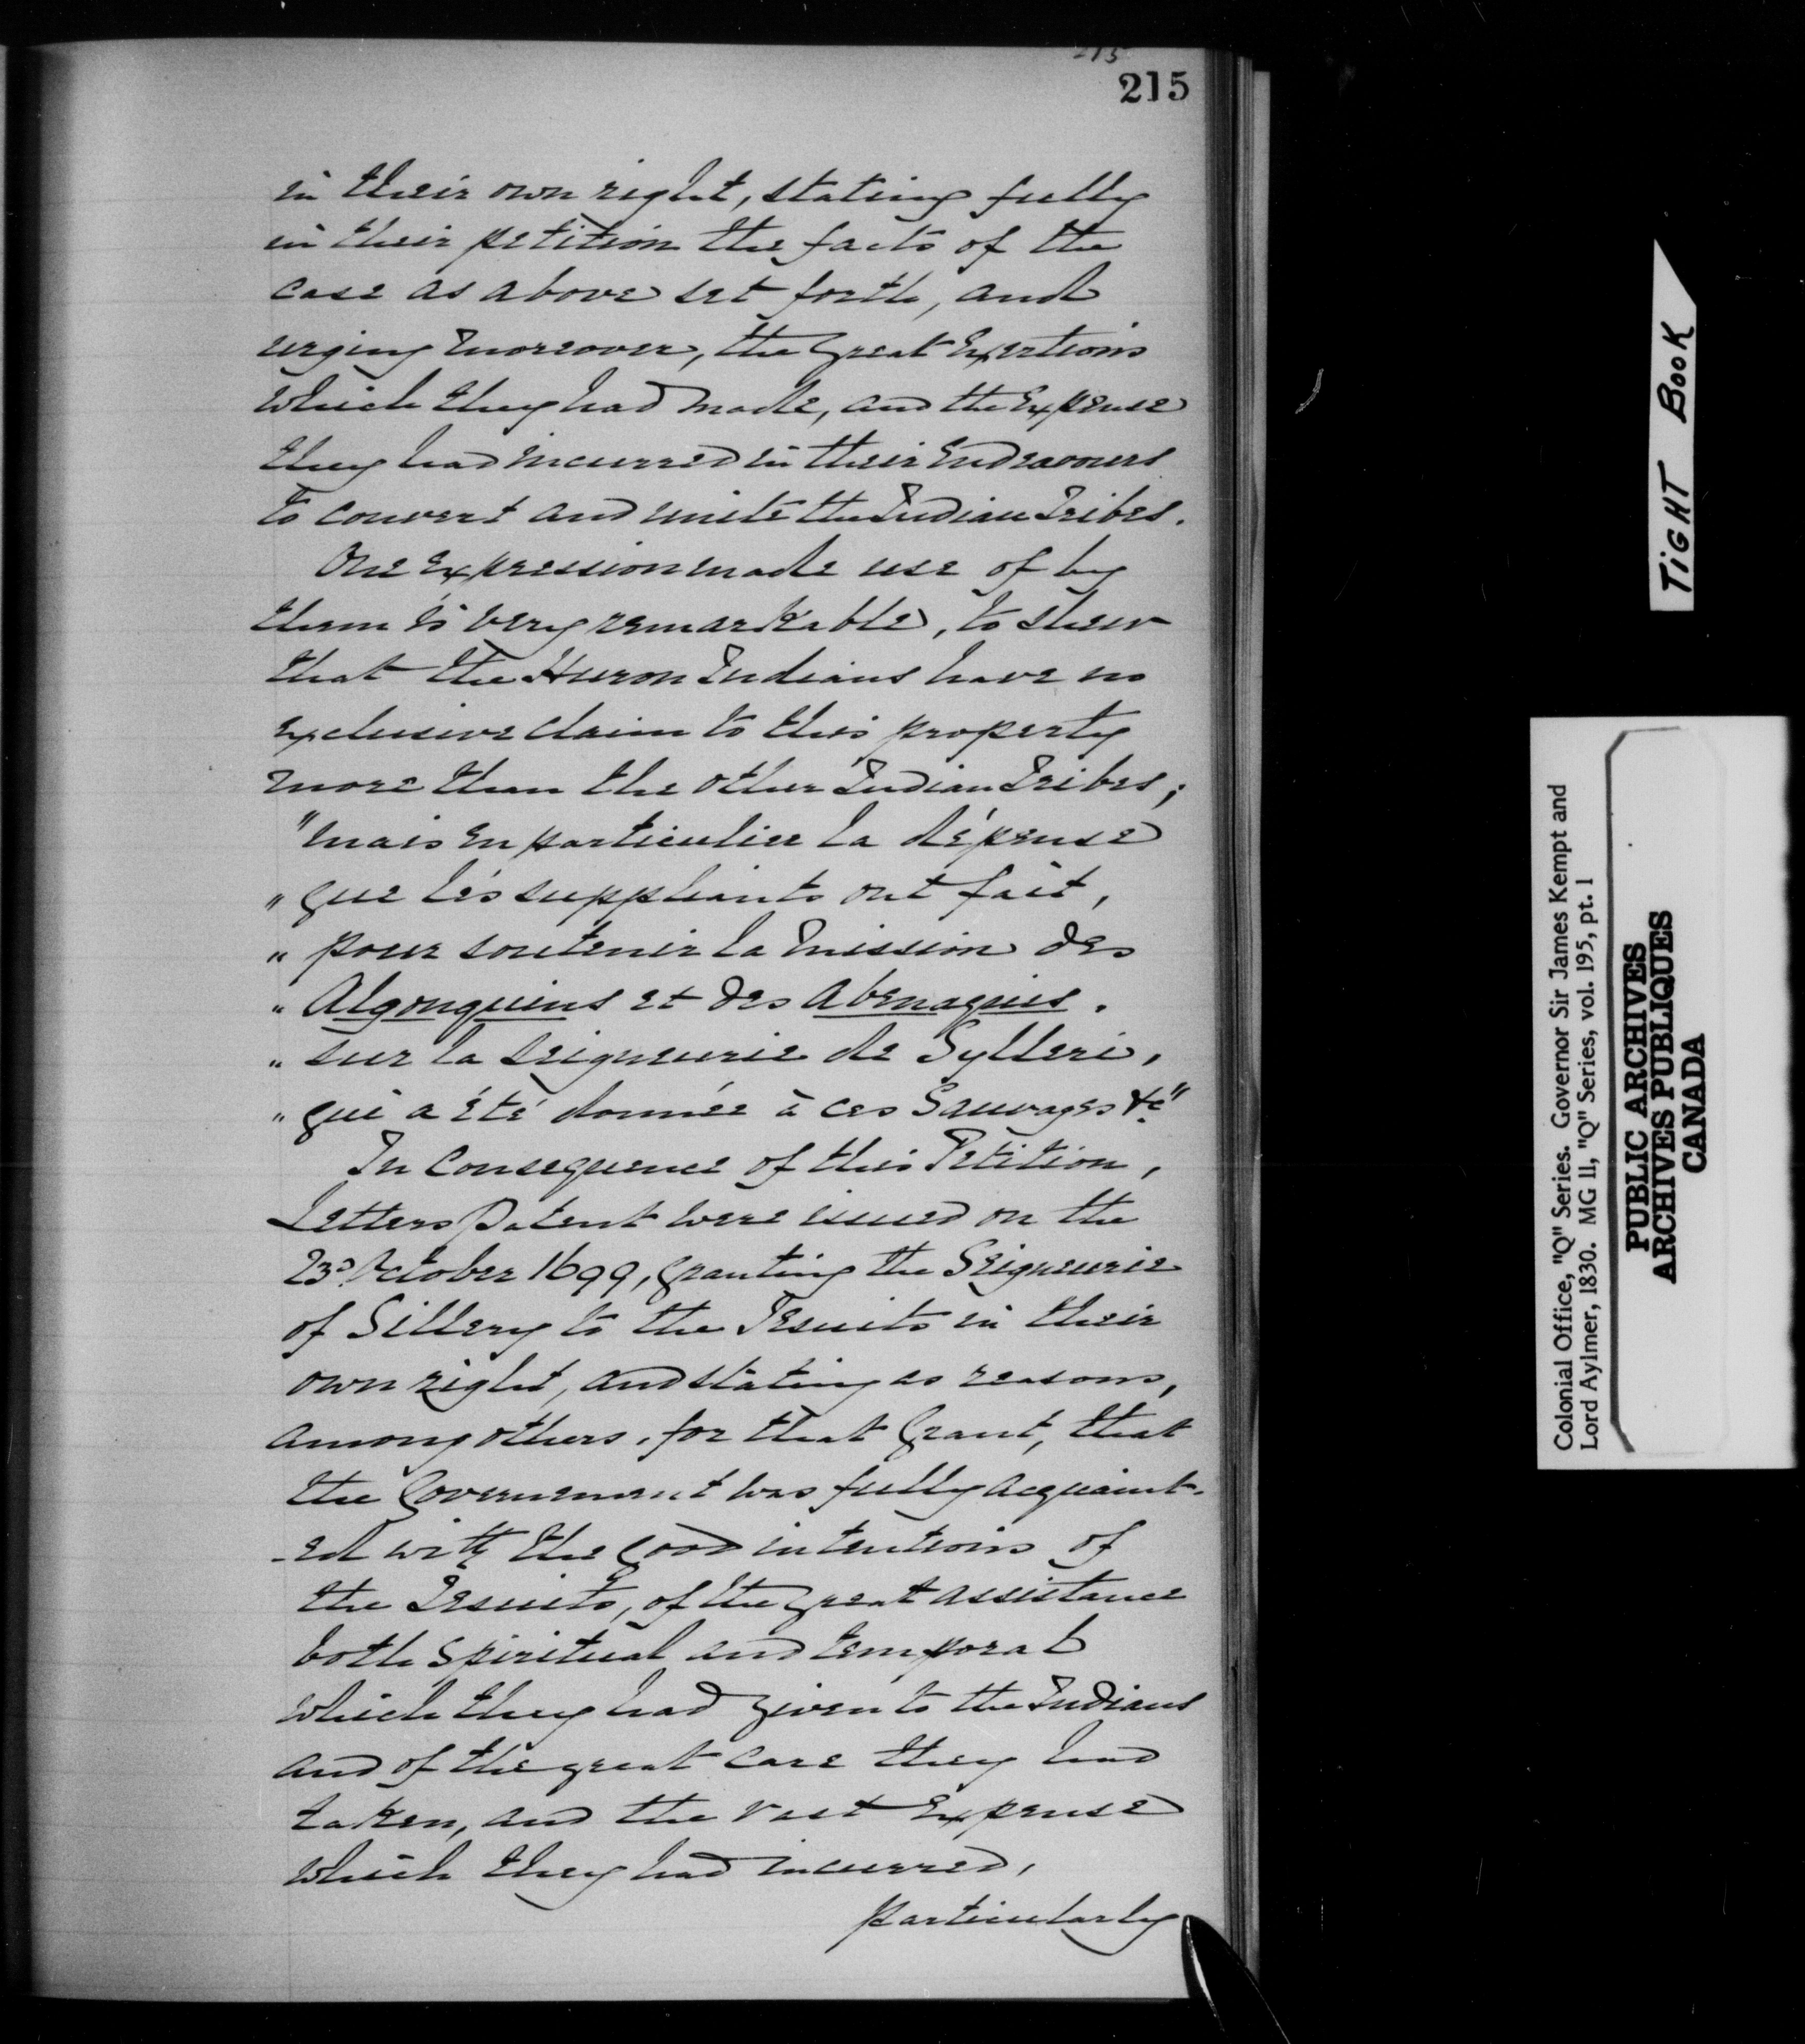 215
215
in their own right, stating fully
in their petition the facts of the
case as above set forth, and
urging moreover, the Great Exertions
which they had made, and the Expense
they had incurred in their Endeavours
to convert and unite the Indian Tribes.
One Expression made use of by
them is very remarkable, to shew
that the Huron Indians have no
exclusive claim to this property
more than the other Indian Tribes;
"mais en particulier la dépense
" que les suppliants ont fait,
" pour soutenir la mission des
" Algonquins et des Abenaquis.
" sur la Seigneurie de Sylleri,
" qui a été donnée à ces Sauvages &c"
In Consequence of this Petition,
Letters Patent were issued on the
23d October 1699, Granting the Seigneurie
of Sillery to the Jesuits in their
own right, and stating as reasons,
among others, for that Grant, that
the Government was fully acquaint-
-ed with the Good intentions of
the Jesuits, of the Great assistance
both Spiritual and temporal
which they had Given to the Indians
and of the great care they had
taken, and the vast Expense
which they had incurred,
particularly
TIGHT BOOK
Colonial Office, "Q" Series. Governor Sir James Kempt and
Lord Aylmer, 1830. MG 11, "Q" Series, vol. 195, pt. 1
PUBLIC ARCHIVES
ARCHIVES PUBLIQUES
CANADA